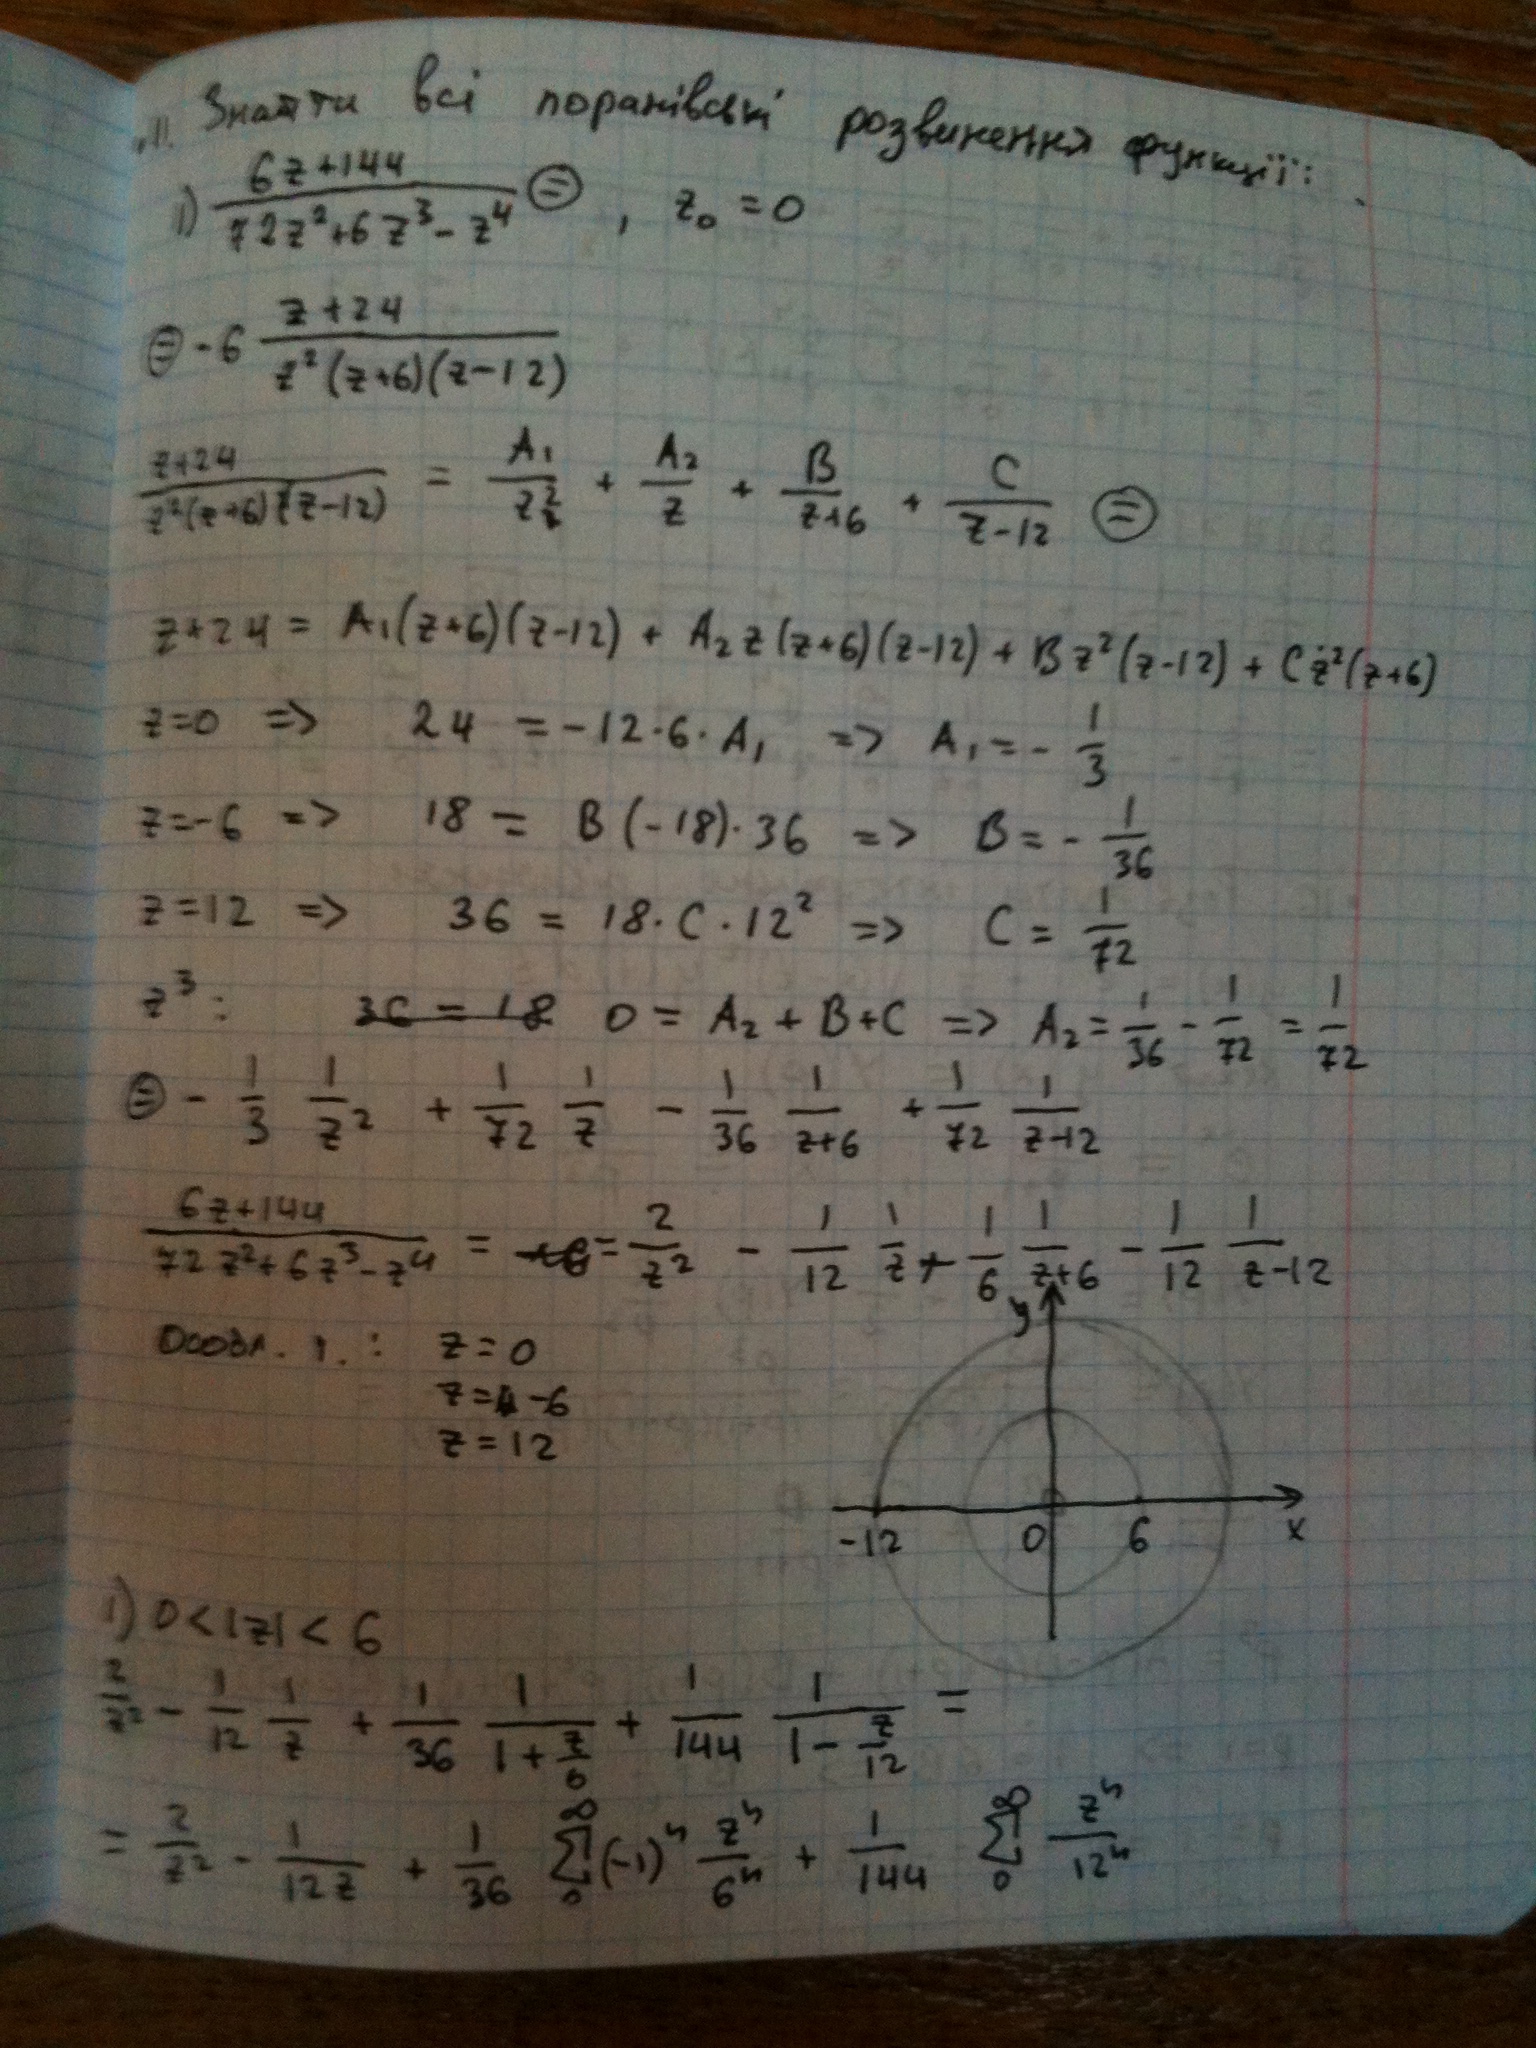 11. Знайти всі лоранівські розвинення функції:
1) (6z+144)/(72z²+6z³-z⁴) ⊜ , z₀ = 0
⊜ -6 (z+24)/(z²(z+6)(z-12))
(z+24)/(z²(z+6)(z-12)) = A₁/z² + A₂/z + B/(z+6) + C/(z-12) ⊜
z+24 = A₁(z+6)(z-12) + A₂z(z+6)(z-12) + Bz²(z-12) + Cz²(z+6)
z=0 => 24 = -12·6·A₁ => A₁ = -1/3
z=-6 => 18 = B(-18)·36 => B = -1/36
z=12 => 36 = 18·C·12² => C = 1/72
z³: 36 = 18 0 = A₂ + B+C => A₂ = 1/36 - 1/72 = 1/72
⊜ - 1/3 1/z² + 1/72 1/z - 1/36 1/(z+6) + 1/72 1/(z-12)
(6z+144)/(72z²+6z³-z⁴) = = 2/z² - 1/12 1/z + 1/6 1/(z+6) - 1/12 1/(z-12)
y
Особл. т.: z=0
z=-6
z=12
-12 0 6 x
1) 0<|z|<6
2/z² - 1/12 1/z + 1/36 1/(1+z/6) + 1/144 1/(1-z/12) =
= 2/z² - 1/(12z) + 1/36 ∑₀^∞ (-1)ⁿ zⁿ/6ⁿ + 1/144 ∑₀^∞ zⁿ/12ⁿ